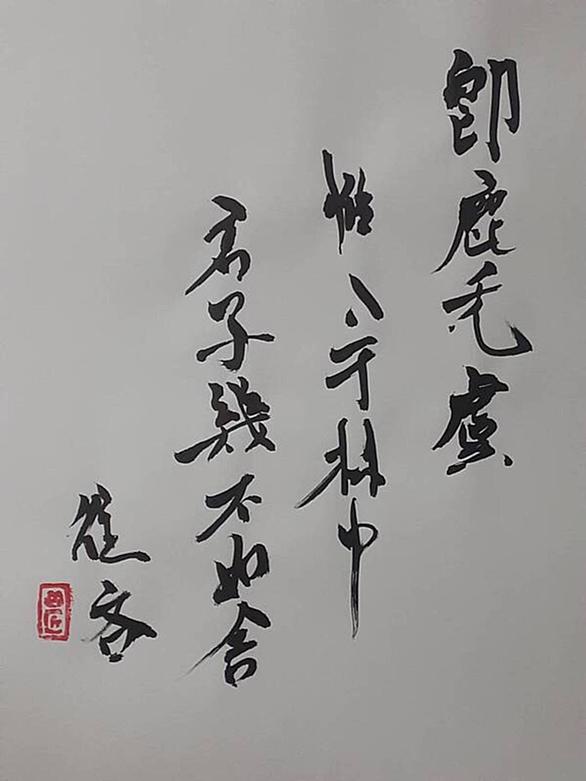 即鹿无虞
惟入于林中
君子幾不如舍
往吝